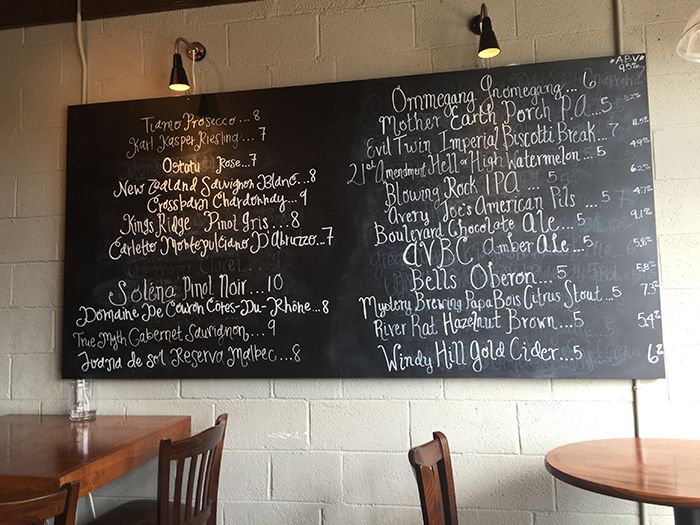 Tiamo Prosecco...8
Karl Kasper Riesling...7
Ostatu Rose...7
New Zealand Sauvignon Blanc...8
Crossbarn Chardonnay...9
Kings Ridge Pinot Gris...8
Carletto Montepulciano D'Abruzzo...7
Soléna Pinot Noir...10
Domaine De Couron Cotes-Du-Rhône...8
True Myth Cabernet Sauvignon...9
Joana de sol Reserva Malbec...8
*ABV*
Ommegang Gnomegang...6 9.5%
Mother Earth Porch PA...5 5.2%
Evil Twin Imperial Biscotti Break...7 11.5%
21st Amendment Hell or High Watermelon...5 4.9%
Blowing Rock IPA...5 6.2%
Avery Joe's American Pils...5 4.7%
Boulevard Chocolate Ale...5 9.1%
AVBC Amber Ale...5 5.8%
Bells Oberon...5 5.8%
Mystery Brewing Papa Bois Citrus Stout...5 7.3%
River Rat Hazelnut Brown...5 5.4%
Windy Hill Gold Cider...5 6%